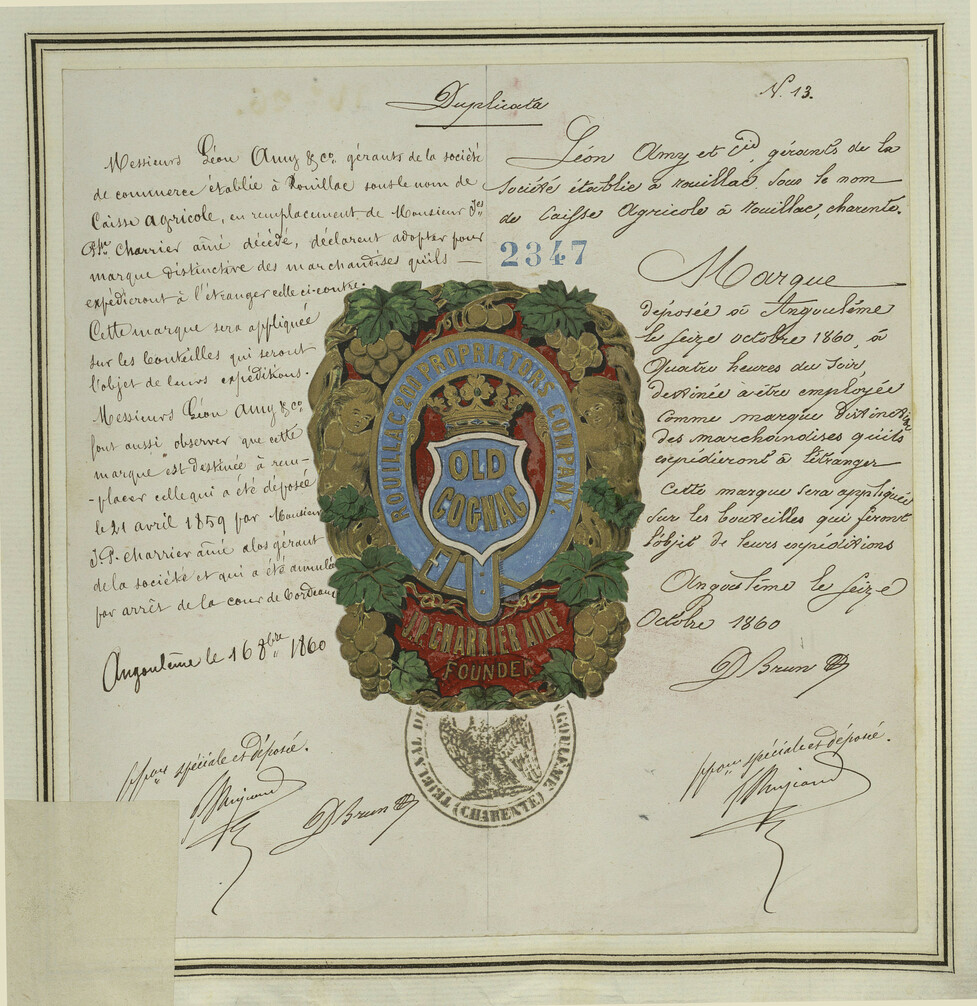 Duplicata
N. 13.
Messieurs Léon Amy & co. gérants de la société
de commerce établie à Rouillac sous le nom de
Caisse agricole, en remplacement de Monsieur Jes
Charrier ainé décédé, déclarent adopter pour
marque distinctive des marchandises qu'ils —
expédieront à l'étranger celle ci-contre.
Cette marque sera appliquée
sur les bouteilles qui seront
l'objet de leurs expéditions.
Messieurs Léon Amy & co
font aussi observer que cette
marque est destinée à rem-
-placer celle qui a été déposée
le 21 avril 1859 par Monsieur
J. P. Charrier ainé alos gérant
de la société et qui a été annulée
par arrêt de la cour de Bordeaux
Angoulême le 16 8bre 1860
spéciale et déposée.
D Brun
Léon Amy et Cie, gérants de la
Société établie à rouillac sous le nom
de Caisse Agricole à rouillac, charente.
2347
Marque
déposée à Angoulême
le seize octobre 1860, à
Quatre heures du soir,
destinée à être employée
comme marque distinctive
des marchandises qu'ils
expédieront à l'étranger
Cette marque sera appliquée
sur les bouteilles qui feront
l'objet de leurs expéditions
Angoulême le seize
Octobre 1860
D Brun
spéciale et déposée.
ROUILLAC 200 PROPRIETORS COMPANY.
OLD
COGNAC
J.P. CHARRIER AINE
FOUNDER
TRIBUNAL DE
NGOULEME
(CHARENTE)